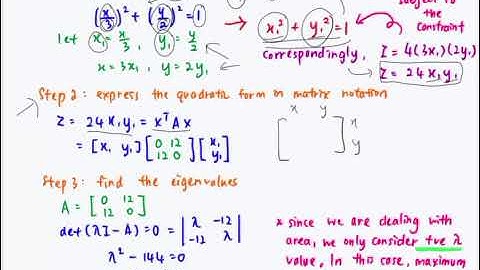 subject to
the
Constraint
(x/3)² + (y/2)² = 1
x₁² + y₁² = 1
let x₁ = x/3, y₁ = y/2
correspondingly,
z = 4(3x₁)(2y₁)
x = 3x₁, y = 2y₁
z = 24x₁y₁
Step 2: express the quadratic form in matrix notation
z = 24x₁y₁ = xᵀAx
= [x₁ y₁] [0 12; 12 0] [x₁; y₁]
x y
x
y
Step 3: find the eigenvalues
A = [0 12; 12 0]
det(λI-A)=0 = |λ -12; -12 λ|
λ² - 144 = 0
* since we are dealing with
area, we only consider +ve λ
value. In this case, maximum